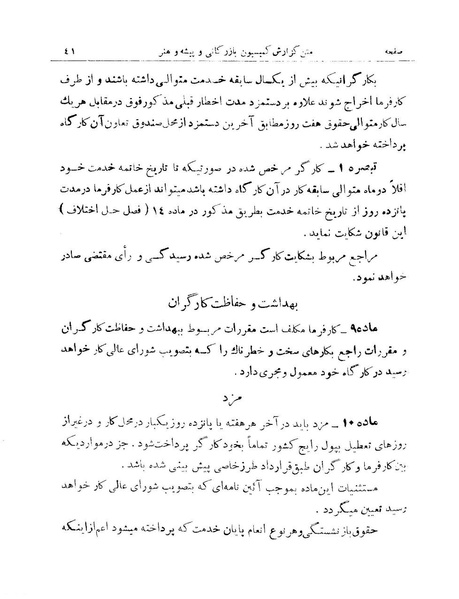 صفحه متن گزارش کمیسیون بازرگانی و پیشه و هنر ٤١
بکارگرانیکه بیش از یکسال سابقه خدمت متوالی داشته باشند و از طرف
کارفرما اخراج شوند علاوه بر دستمزد مدت اخطار قبلی مذکور فوق در مقابل هریك
سال کار متوالی حقوق هفت روز مطابق آخرین دستمزد از محل صندوق تعاون آن کارگاه
پرداخته خواهد شد .
تبصره ۱ – کارگر مرخص شده در صورتیکه تا تاریخ خاتمه خدمت خود
اقلاً دو ماه متوالی سابقه کار در آن کارگاه داشته باشد میتواند از عمل کارفرما در مدت
پانزده روز از تاریخ خاتمه خدمت بطریق مذکور در ماده ١٤ ( فصل حل اختلاف )
این قانون شکایت نماید .
مراجع مربوط بشکایت کارگر مرخص شده رسیدگی و رأی مقتضی صادر
خواهد نمود.
بهداشت و حفاظت کارگران
ماده ۹ – کارفرما مکلف است مقررات مربوط ببهداشت و حفاظت کارگران
و مقررات راجع بکارهای سخت و خطرناك را که بتصویب شورای عالی کار خواهد
رسید در کارگاه خود معمول و مجری دارد .
مزد
ماده ۱۰ – مزد باید در آخر هر هفته یا پانزده روز یکبار در محل کار و در غیر از
روزهای تعطیل بپول رایج کشور تماماً بخود کارگر پرداخت شود . جز در مواردیکه
بین کارفرما و کارگران طبق قرارداد طرز خاصی پیش بینی شده باشد .
مستثنیات این ماده بموجب آئین نامه‌ای که بتصویب شورای عالی کار خواهد
رسید تعیین میگردد .
حقوق بازنشستگی و هر نوع انعام پایان خدمت که پرداخته میشود اعم از اینکه